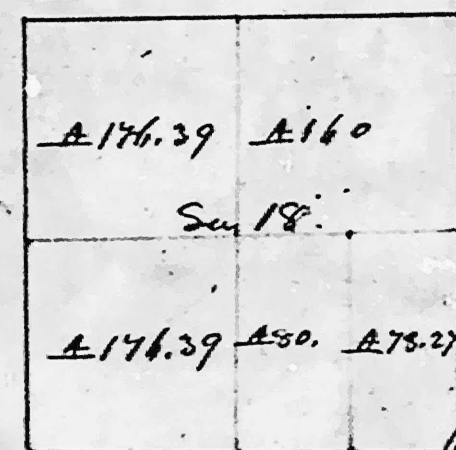 A 176.39 A 160
Sec 18.
A 176.39 A 80. A 73.27